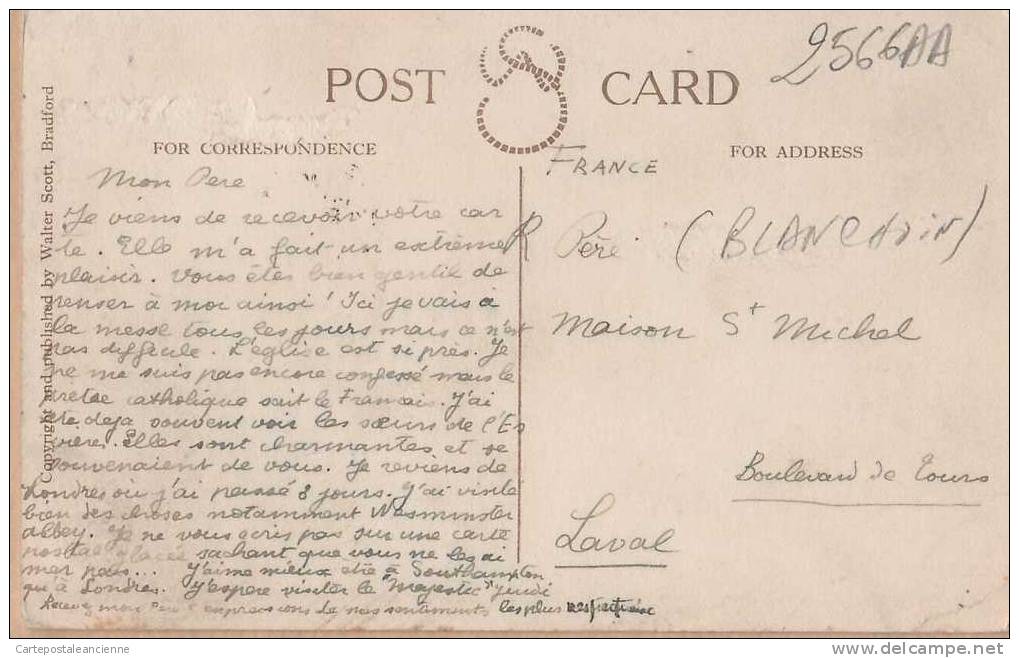 2566AA
POST CARD
FOR CORRESPONDENCE
FOR ADDRESS
Copyright and published by Walter Scott, Bradford
Mon Père
Je viens de recevoir votre car
te. Elle m'a fait un extrême
plaisir. Vous êtes bien gentil de
penser à moi ainsi! Ici je vais à
la messe tous les jours mais ce n'est
pas difficile. L'église est si près. Je
ne me suis pas encore confessé mais le
prêtre catholique sait le Français. J'ai
été deja souvent voir les sœurs de l'Es
vière. Elles sont charmantes et se
souvenaient de vous. Je reviens de
Londres où j'ai passé 8 jours. J'ai visité
bien des choses notamment Wesminster
abbey. Je ne vous écris pas sur une carte
postale glacée sachant que vous ne les ai
mer pas... J'aime mieux etre à Southampton
qu'à Londres. J'espère visiter le "Majestic" jeudi
Recevez mon Père expressions de mes sentiments les plus respectueux
FRANCE
R Père (BLANCHOIN)
Maison St Michel
Boulevard de Tours
Laval
Cartepostaleancienne
delcampe.net